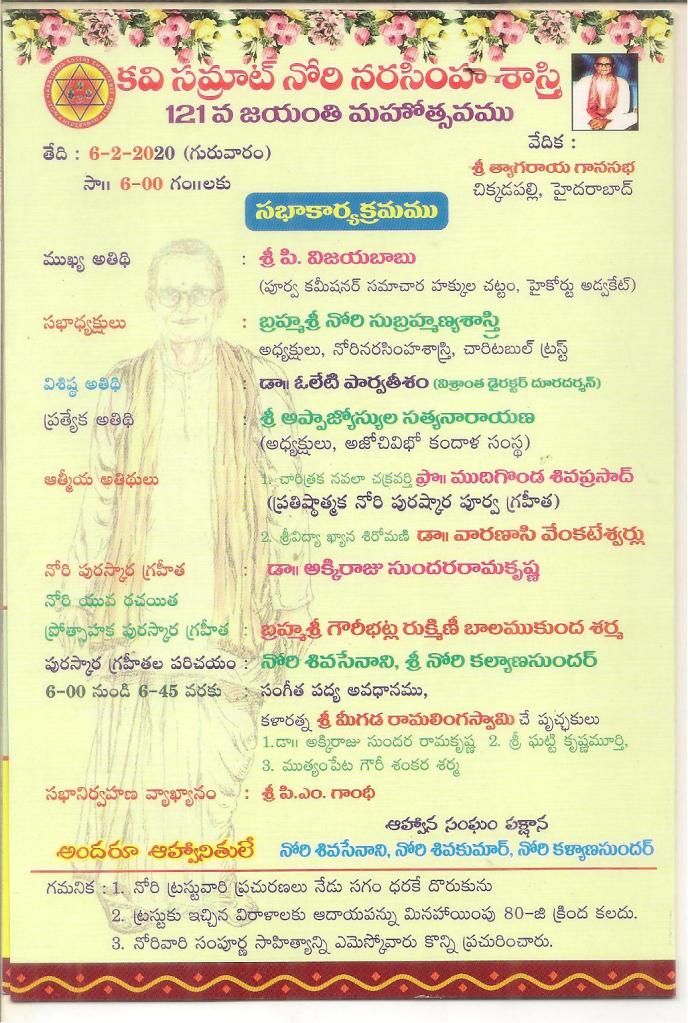 కవి సమ్రాట్ నోరి నరసింహ శాస్త్రి
121 వ జయంతి మహోత్సవము
తేది : 6-2-2020 (గురువారం)
సా॥ 6-00 గం॥లకు
వేదిక :
శ్రీ త్యాగరాయ గానసభ
చిక్కడపల్లి, హైదరాబాద్
సభాకార్యక్రమము
ముఖ్య అతిథి : శ్రీ పి. విజయబాబు
(పూర్వ కమీషనర్ సమాచార హక్కుల చట్టం, హైకోర్టు అడ్వకేట్)
సభాధ్యక్షులు : బ్రహ్మశ్రీ నోరి సుబ్రహ్మణ్యశాస్త్రి
అధ్యక్షులు, నోరినరసింహశాస్త్రి, చారిటబుల్ ట్రస్ట్
విశిష్ఠ అతిథి : డా॥ ఓలేటి పార్వతీశం (విశ్రాంత డైరక్టర్ దూరదర్శన్)
ప్రత్యేక అతిథి : శ్రీ అప్పాజ్యోస్యుల సత్యనారాయణ
(అధ్యక్షులు, అజోచివిభో కందాళ సంస్థ)
ఆత్మీయ అతిథులు : 1. చారిత్రక నవలా చక్రవర్తి ప్రొ॥ ముదిగొండ శివప్రసాద్
(ప్రతిష్ఠాత్మక నోరి పురష్కార పూర్వ గ్రహీత)
2. శ్రీవిద్యా ఖ్యాన శిరోమణి డా॥ వారణాసి వేంకటేశ్వర్లు
నోరి పురస్కార గ్రహీత : డా॥ అక్కిరాజు సుందరరామకృష్ణ
నోరి యువ రచయిత
ప్రోత్సాహక పురస్కార గ్రహీత : బ్రహ్మశ్రీ గౌరీభట్ల రుక్మిణీ బాలముకుంద శర్మ
పురస్కార గ్రహీతల పరిచయం : నోరి శివసేనాని, శ్రీ నోరి కల్యాణసుందర్
6-00 నుండి 6-45 వరకు : సంగీత పద్య అవధానము,
కళారత్న శ్రీ మీగడ రామలింగస్వామి చే పృచ్ఛకులు
1.డా॥ అక్కిరాజు సుందర రామకృష్ణ 2. శ్రీ ఘట్టి కృష్ణమూర్తి,
3. ముత్యంపేట గౌరీ శంకర శర్మ
సభానిర్వహణ వ్యాఖ్యానం : శ్రీ పి.ఎం. గాంధీ
ఆహ్వాన సంఘం పక్షాన
అందరూ ఆహ్వానితులే నోరి శివసేనాని, నోరి శివకుమార్, నోరి కళ్యాణసుందర్
గమనిక : 1. నోరి ట్రస్టువారి ప్రచురణలు నేడు సగం ధరకే దొరుకును
2. ట్రస్టుకు ఇచ్చిన విరాళాలకు ఆదాయపన్ను మినహాయింపు 80-జి క్రింద కలదు.
3. నోరివారి సంపూర్ణ సాహిత్యాన్ని ఎమెస్కోవారు కొన్ని ప్రచురించారు.